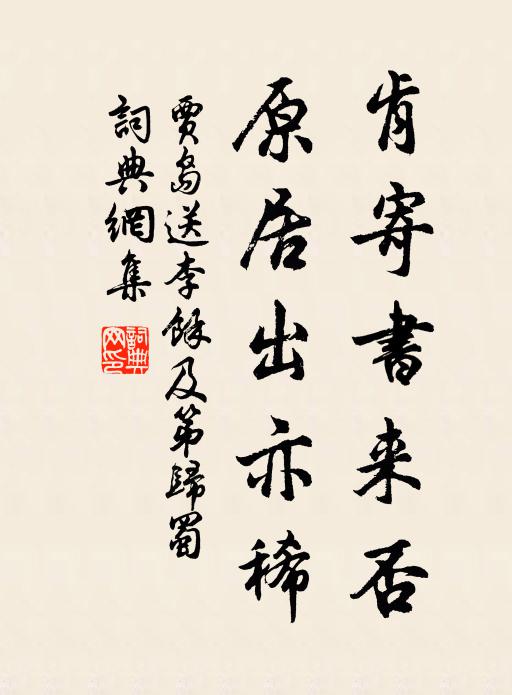 肯寄書来否
原居出亦稀
賈島送李餘及第歸蜀
詞典網集
詞典網印